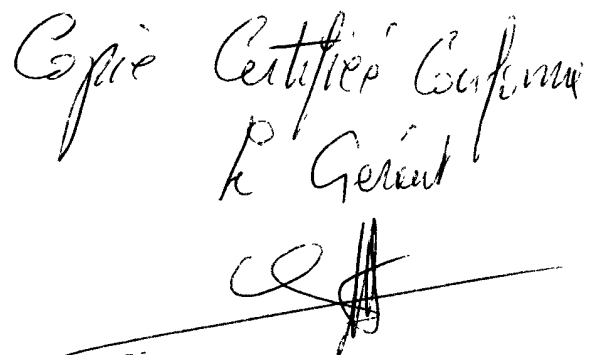 Copie Certifiée Conforme
Le Gérant